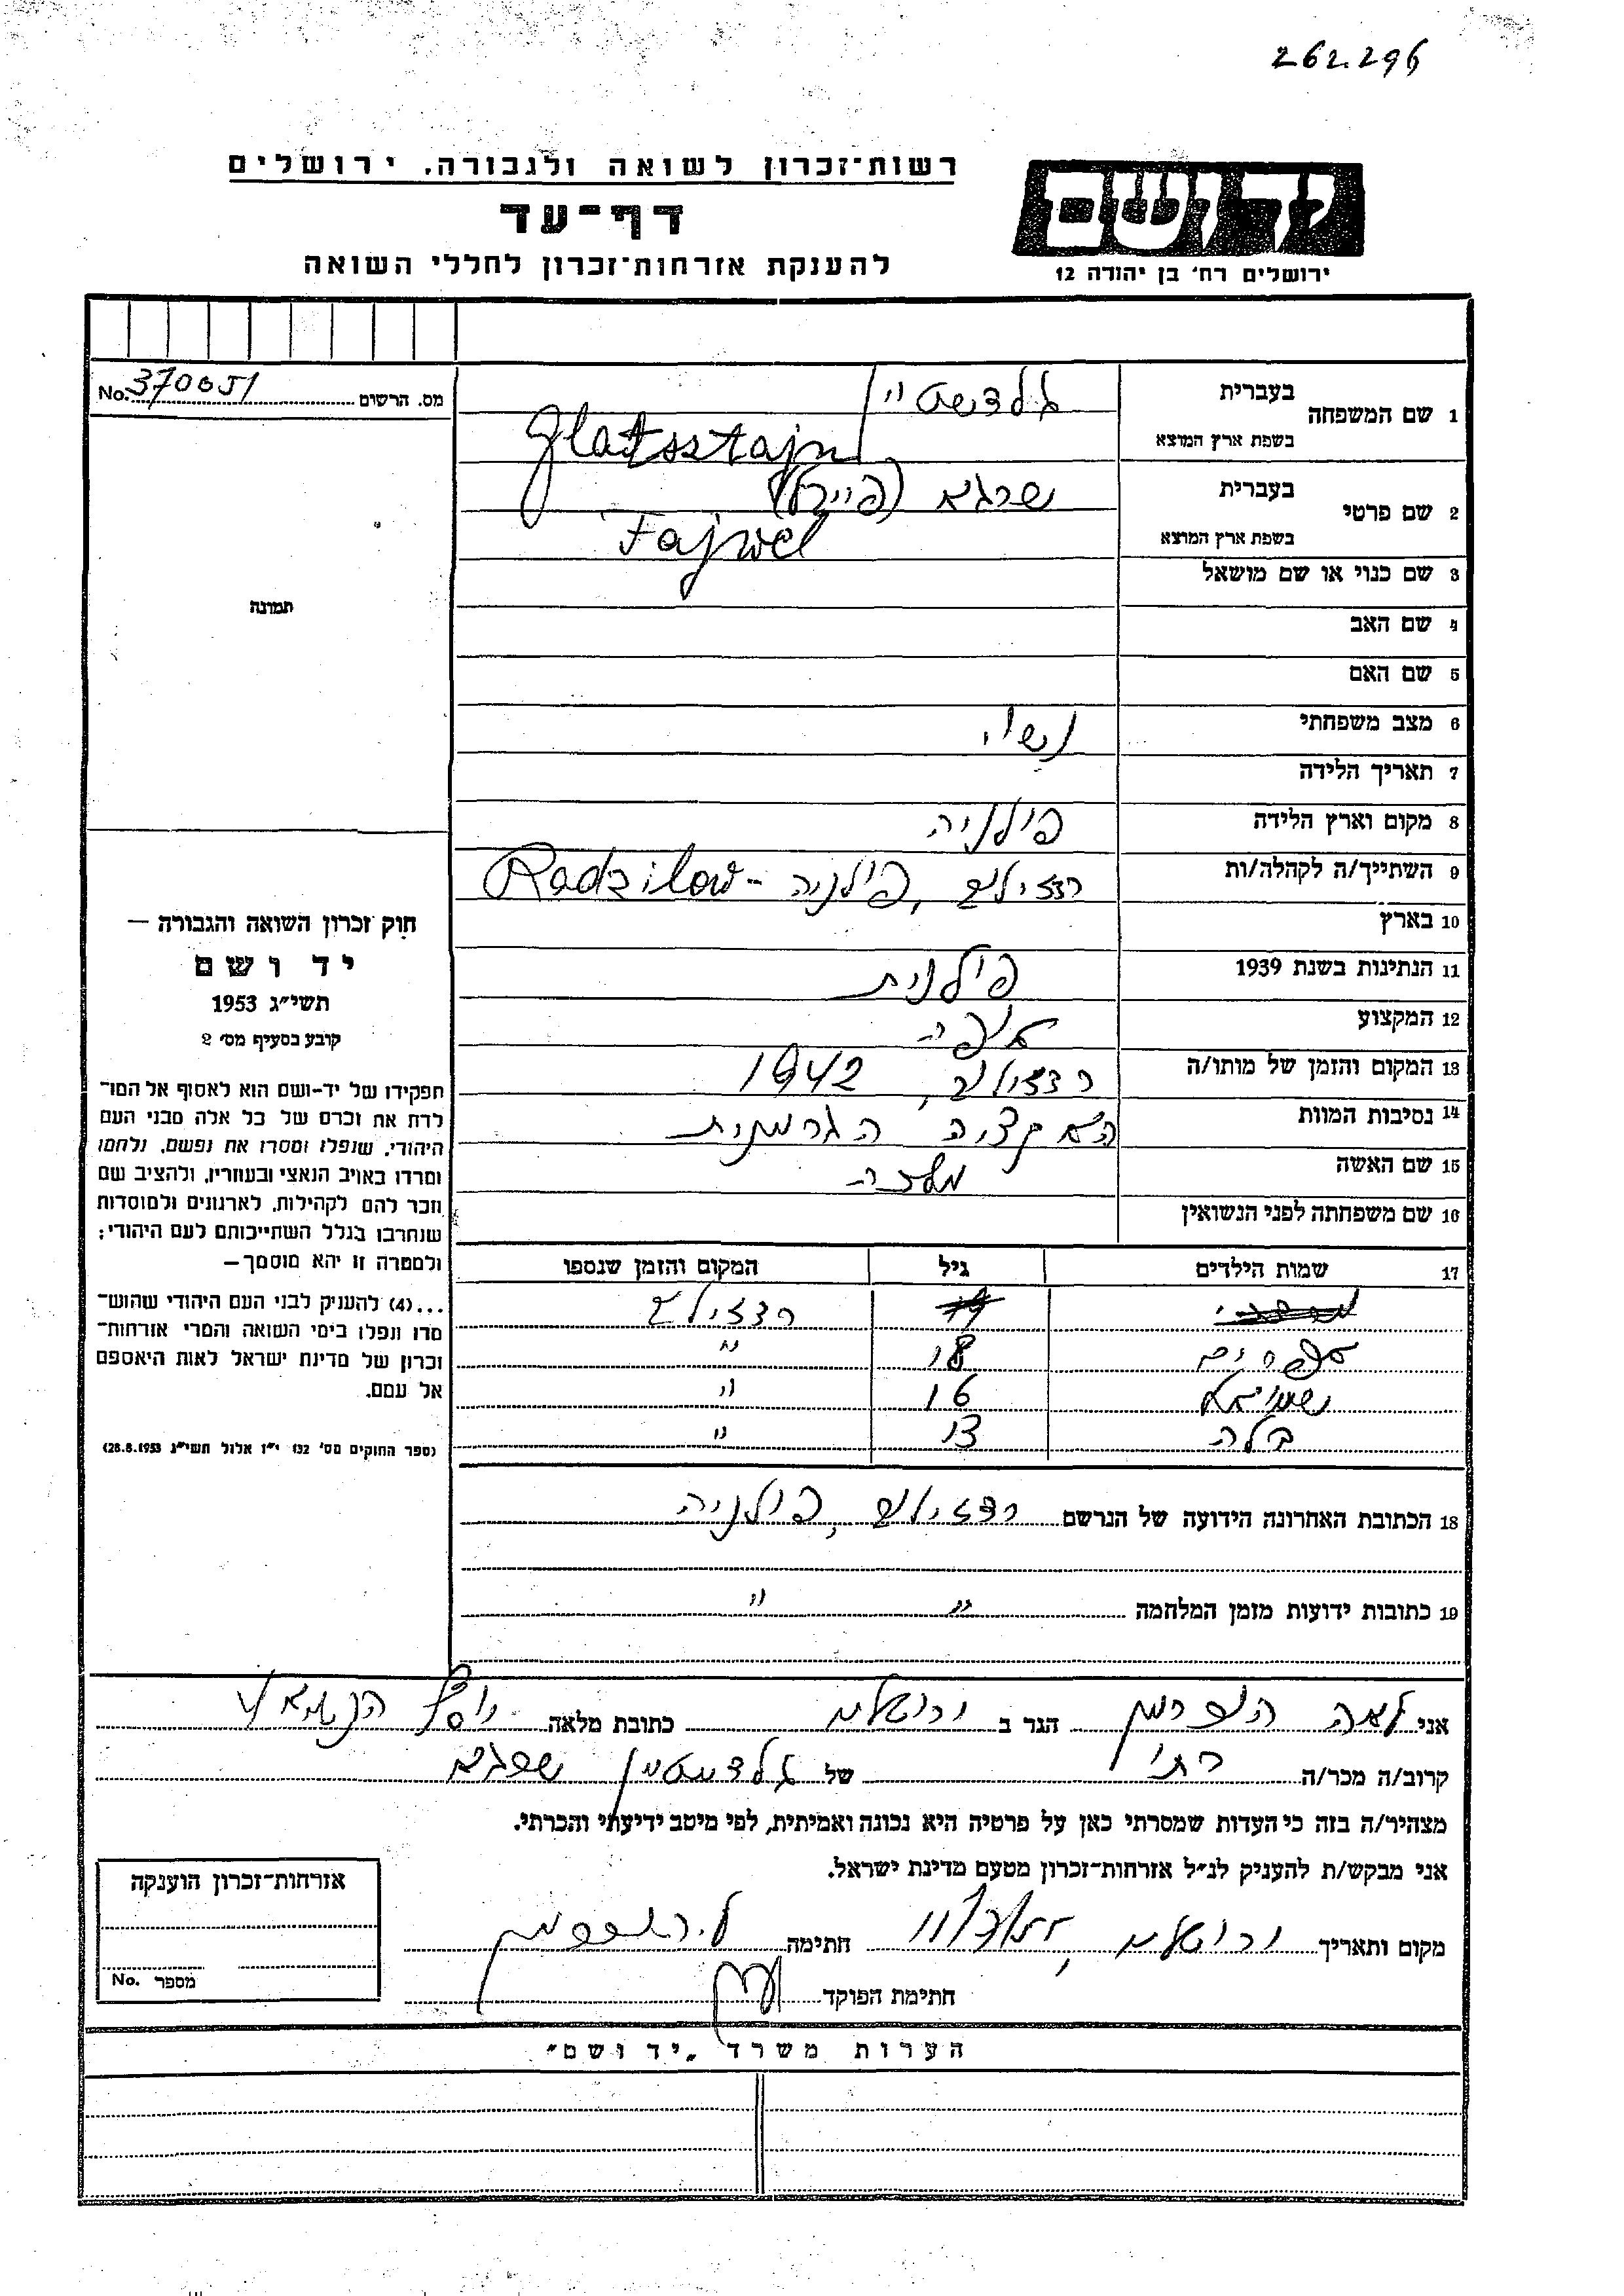 262.296
רשות־זכרון לשואה ולגבורה. ירושלים
דף־עד
להענקת אזרחות־זכרון לחללי השואה
יד ושם
ירושלים רח' בן יהודה 12
מס. הרשום No. 370051
1 שם המשפחה
בעברית גלדשטיין
בשפת ארץ המוצא Glatsstajn
2 שם פרטי
בעברית שרגא (פייבל)
בשפת ארץ המוצא Fajwel
3 שם כנוי או שם מושאל
4 שם האב
5 שם האם
6 מצב משפחתי נשוי
7 תאריך הלידה
8 מקום וארץ הלידה פולניה
9 השתייך/ה לקהלה/ות רדזילוב, פולניה - Radzilow
10 בארץ
11 הנתינות בשנת 1939 פולנית
12 המקצוע אופה
13 המקום והזמן של מותו/ה רדזילוב, 1942
14 נסיבות המוות האקציה הגרמנית
15 שם האשה מלכה
16 שם משפחתה לפני הנשואין
17 שמות הילדים גיל המקום והזמן שנספו
רדזילוב
אפרים 18 "
שמואל 16 "
בלה 13 "
18 הכתובת האחרונה הידועה של הנרשם רדזילוב, פולניה
19 כתובות ידועות מזמן המלחמה " "
תמונה
חוק זכרון השואה והגבורה —
יד ושם
תשי״ג 1953
קובע בסעיף מס' 2
תפקידו של יד-ושם הוא לאסוף אל המו־
לדת את זכרם של כל אלה מבני העם
היהודי, שנפלו ומסרו את נפשם, נלחמו
ומרדו באויב הנאצי ובעוזריו, ולהציב שם
וזכר להם לקהילות, לארגונים ולמוסדות
שנחרבו בגלל השתייכותם לעם היהודי;
ולמטרה זו יהא מוסמך —
...(4) להעניק לבני העם היהודי שהוש־
מדו ונפלו בימי השואה והמרי אזרחות־
זכרון של מדינת ישראל לאות היאספם
אל עמם.
(ספר החוקים מס' 132 י״ז אלול תשי״ג 28.8.1953)
אני לאה הופרמן הגר ב ירושלים כתובת מלאה יוסף הנשיא
קרוב/ה מכר/ה בתו של גלדשטיין שרגא
מצהיר/ה בזה כי העדות שמסרתי כאן על פרטיה היא נכונה ואמיתית, לפי מיטב ידיעתי והכרתי.
אני מבקש/ת להעניק לנ״ל אזרחות־זכרון מטעם מדינת ישראל.
מקום ותאריך ירושלים, חתימה
חתימת הפוקד
אזרחות־זכרון הוענקה
מספר No.
הערות משרד „יד ושם"